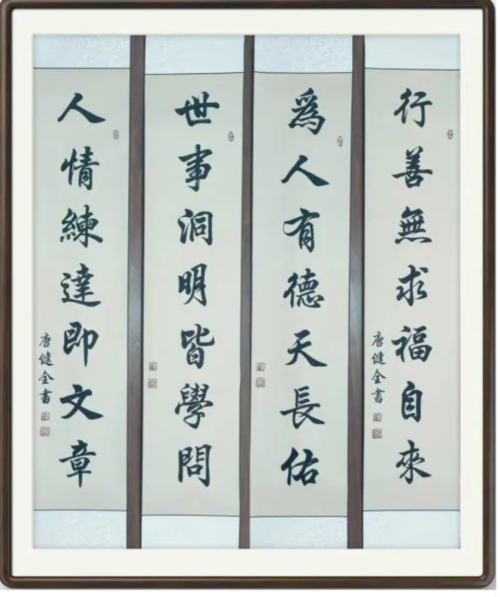 行善無求福自來
唐健全書
爲人有德天長佑
世事洞明皆學問
人情練達即文章
唐健全書